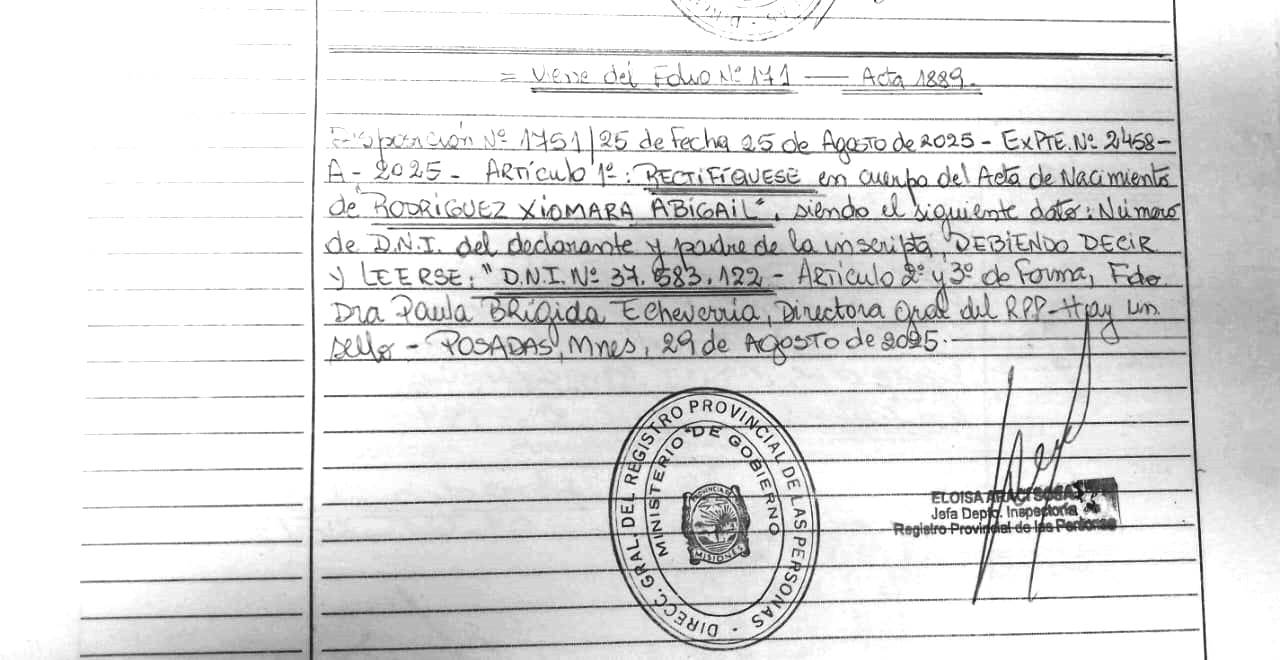 = Viene del Folio Nº 171 — Acta 1889.
Disposición Nº 1751/25 de Fecha 25 de Agosto de 2025 - ExPTE. Nº 2458-
A - 2025 - ARTículo 1º: RECTIFÍQUESE en cuerpo del Acta de Nacimiento
de "RODRIGUEZ XIOMARA ABIGAIL", siendo el siguiente dato: Número
de D.N.I. del declarante y padre de la inscripta, DEBIENDO DECIR
y LEERSE: "D.N.I. Nº 37.583.122 - ARTículo 2º y 3º de Forma, Fdo.
Dra Paula BRígida Echeverria, Directora Gral del RPP - Hay un
sello - POSADAS, Mnes, 29 de AGOSTO de 2025.-
DIRECC. GRAL. DEL REGISTRO PROVINCIAL DE LAS PERSONAS -
MINISTERIO DE GOBIERNO
PROVINCIA DE
MISIONES
ELOISA ARACI SOSA
Jefa Depto. Inspectoría
Registro Provincial de las Personas